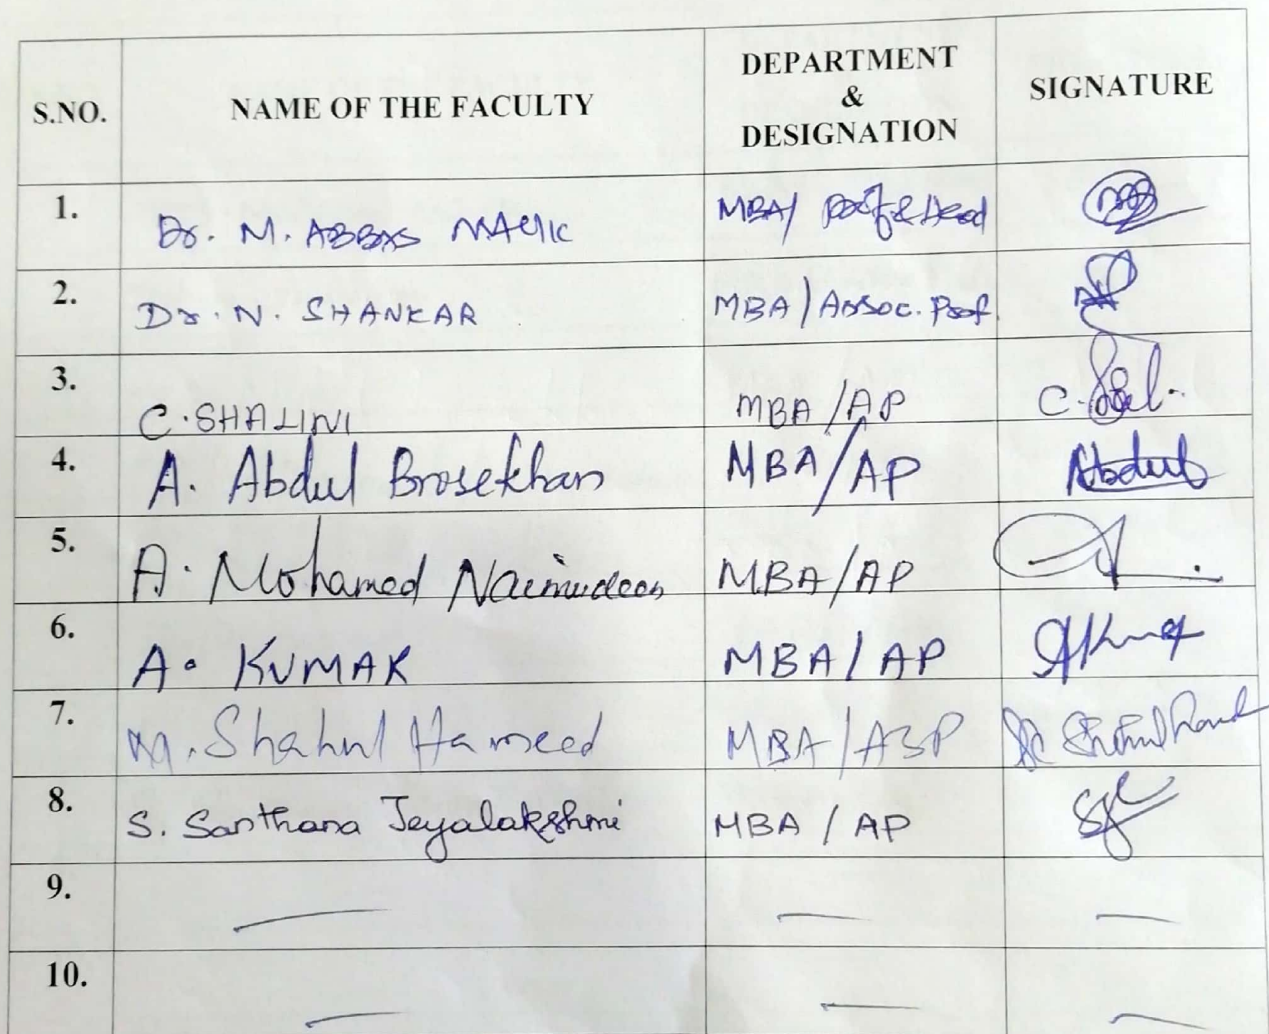 S.NO. NAME OF THE FACULTY DEPARTMENT & DESIGNATION SIGNATURE
1. Dr. M. ABBAS MALIK MBA/ Prof & Head
2. Dr. N. SHANKAR MBA/Assoc. Prof.
3. C. SHALINI MBA/AP
4. A. Abdul Brosekhan MBA/AP Abdul
5. A. Mohamed Nainudeen MBA/AP
6. A. KUMAR MBA/AP
7. M. Shahul Hameed MBA/ASP
8. S. Santhana Jeyalakshmi MBA / AP
9. — — —
10. — — —